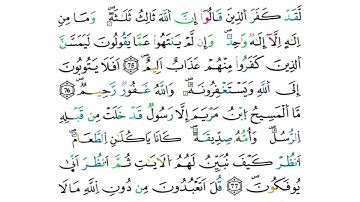 لَّقَدْ كَفَرَ الَّذِينَ قَالُوا إِنَّ اللَّهَ ثَالِثُ ثَلَٰثَةٍ ۘ وَمَا مِنْ
إِلَٰهٍ إِلَّا إِلَٰهٌ وَٰحِدٌ ۚ وَإِن لَّمْ يَنتَهُوا عَمَّا يَقُولُونَ لَيَمَسَّنَّ
الَّذِينَ كَفَرُوا مِنْهُمْ عَذَابٌ أَلِيمٌ ٧٥ أَفَلَا يَتُوبُونَ
إِلَى اللَّهِ وَيَسْتَغْفِرُونَهُ ۚ وَاللَّهُ غَفُورٌ رَّحِيمٌ ٧٦
مَّا الْمَسِيحُ ابْنُ مَرْيَمَ إِلَّا رَسُولٌ قَدْ خَلَتْ مِن قَبْلِهِ
الرُّسُلُ ۖ وَأُمُّهُ صِدِّيقَةٌ ۖ كَانَا يَأْكُلَانِ الطَّعَامَ ۗ
انظُرْ كَيْفَ نُبَيِّنُ لَهُمُ الْآيَاتِ ثُمَّ انظُرْ أَنَّىٰ
يُؤْفَكُونَ ٧٧ قُلْ أَتَعْبُدُونَ مِن دُونِ اللَّهِ مَا لَا